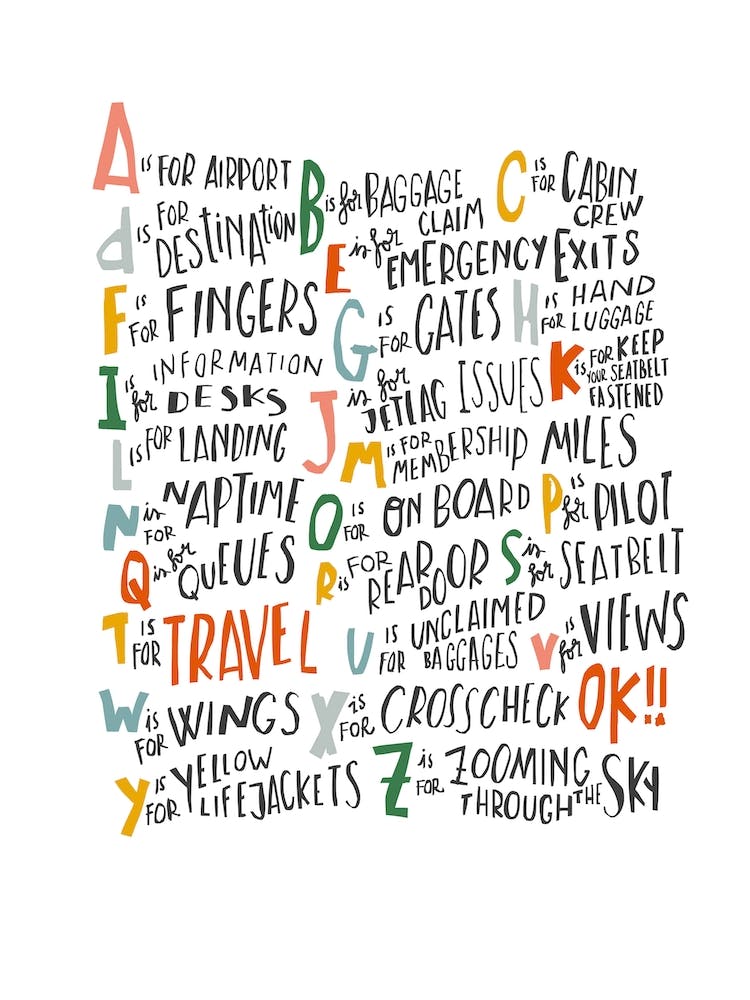 A IS FOR AIRPORT B is for BAGGAGE CLAIM C IS FOR CABIN CREW
d IS FOR DESTINATION E is for EMERGENCY EXITS
F IS FOR FINGERS G IS FOR GATES H IS FOR HAND LUGGAGE
I is for INFORMATION DESKS J is for JETLAG ISSUES K is FOR KEEP YOUR SEATBELT FASTENED
L IS FOR LANDING M IS FOR MEMBERSHIP MILES
N is FOR NAPTIME O IS FOR ON BOARD P is for PILOT
Q is for QUEUES R is FOR REAR DOOR S is for SEATBELT
T IS FOR TRAVEL U IS FOR UNCLAIMED BAGGAGES V IS for VIEWS
W is FOR WINGS X is FOR CROSSCHECK OK!!
Y IS FOR YELLOW LIFEJACKETS Z is FOR ZOOMING THROUGH THE SKY